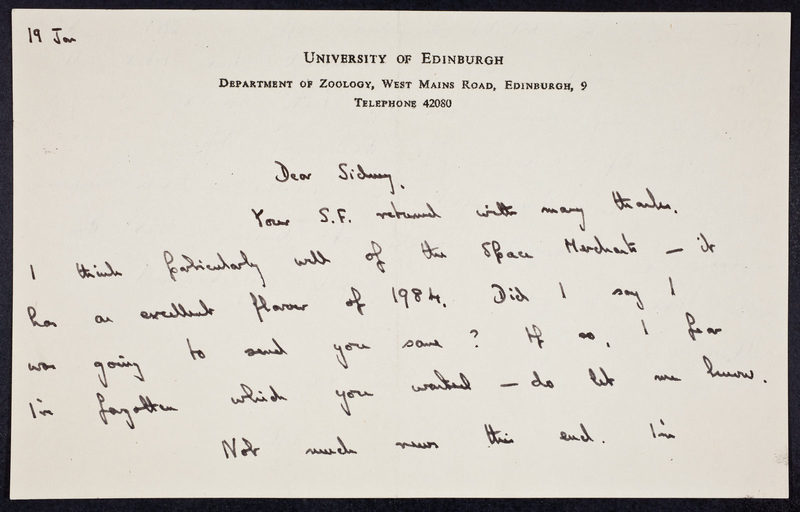 19 Jan
UNIVERSITY OF EDINBURGH
DEPARTMENT OF ZOOLOGY, WEST MAINS ROAD, EDINBURGH, 9
TELEPHONE 42080
Dear Sidney,
Your S.F. returned with many thanks.
I think particularly well of the Space Merchants — it
has an excellent flavour of 1984. Did I say I
was going to send you some? If so, I fear
I'm forgotten which you wanted — do let me know.
Not much news this end. I'm